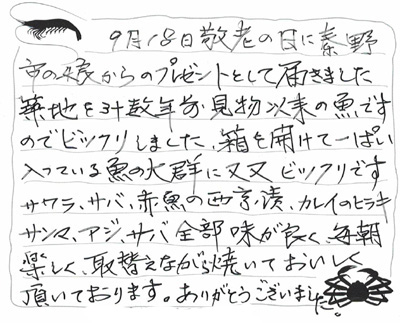 9月18日敬老の日に秦野
市の娘からのプレゼントとして届きました
築地を計数年前見物以来の魚です
のでビックリしました、箱を開けて一ぱい
入っている魚の大群に又又ビックリです
サワラ、サバ、赤魚の西京漬、カレイのヒラキ
サンマ、アジ、サバ全部味が良く、毎朝
楽しく、取替えながら焼いておいしく
頂いております。ありがとうございました。